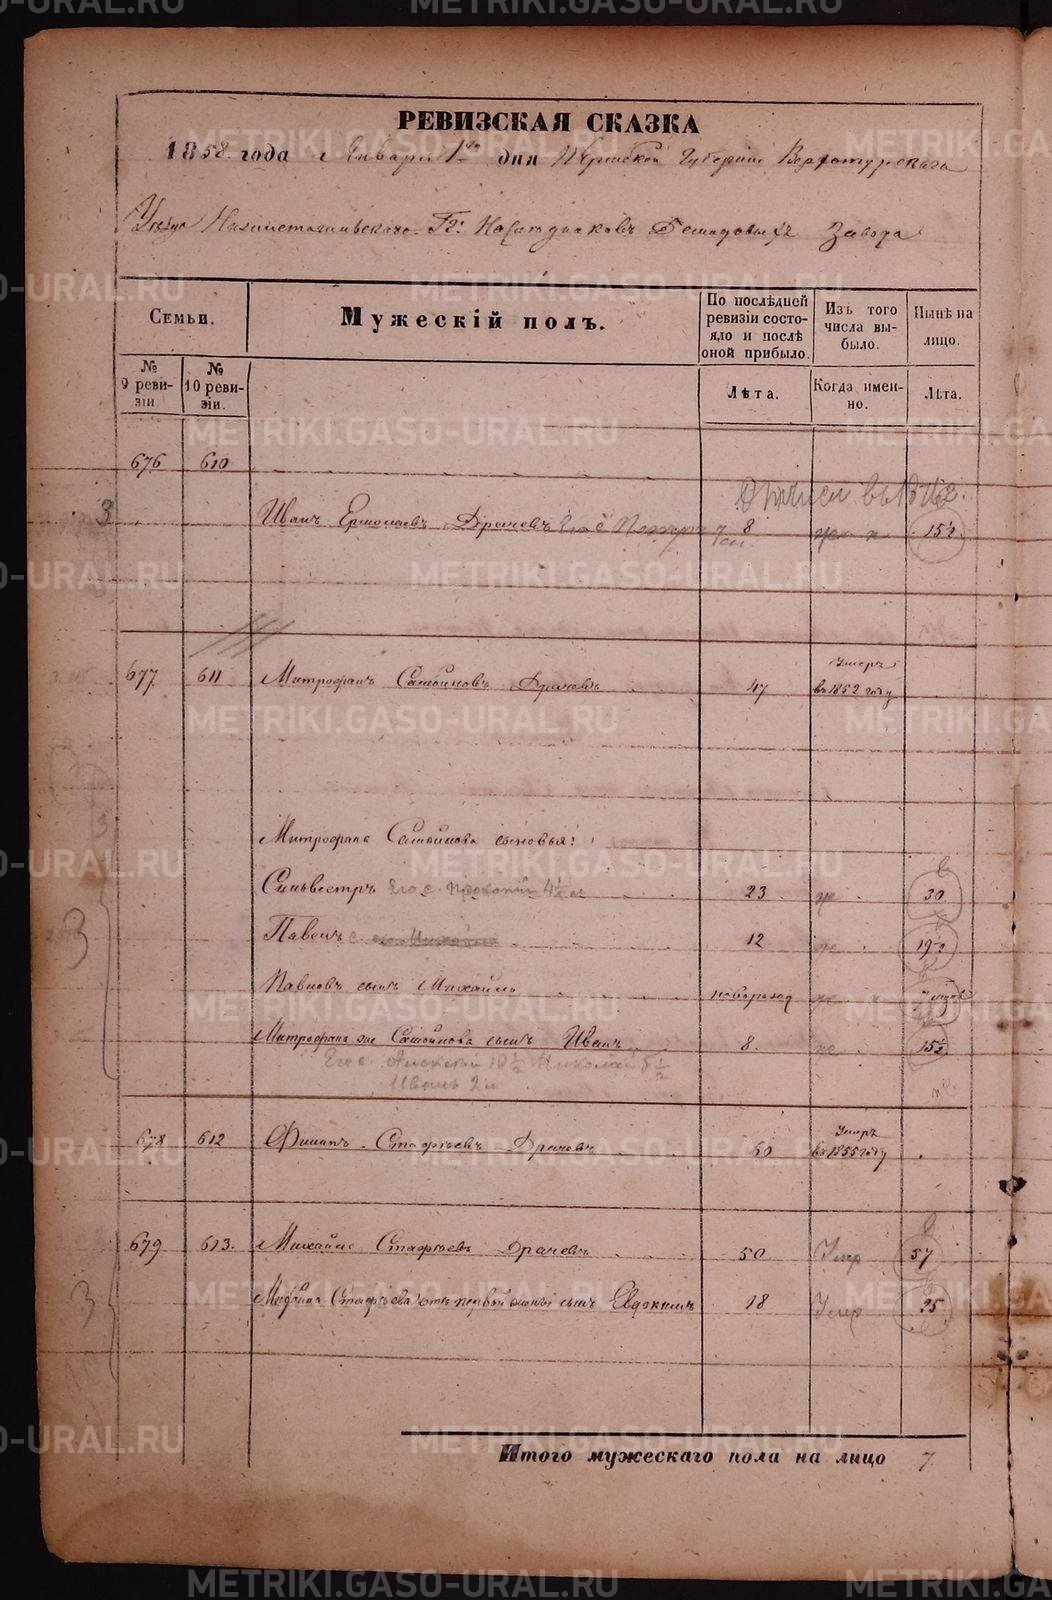 METRIKI.GASO-URAL.RU
РЕВИЗСКАЯ СКАЗКА
1858 года Января 1го дня Пермской Губернии Верхотурскаго
Уезда Нижнетагильскаго Гг: Наследниковъ Демидовыхъ Завода
Семьи.
Мужескій полъ.
По послѣдней ревизіи состояло и послѣ оной прибыло.
Изъ того числа выбыло.
Нынѣ на лицо.
№ 9 ревизіи.
№ 10 ревизіи.
Лѣта.
Когда именно.
Лѣта.
676 610
3 Иванъ Ермолаевъ Драчевъ 8 15½
677. 611 Митрофанъ Самойловъ Драчевъ 47 Умеръ въ 1852 году
Митрофана Самойлова сыновья:
Сильвестръ Его с. 4½ 23 30
Павелъ 12 19½
3
Павловъ сынъ Михайло новорожд
Митрофана же Самойлова сынъ Иванъ 8. 15½
Его с. Алексей 10½ Николай 5½
Иванъ 2
678 612 Филипъ Стафѣевъ Драчевъ 60 Умеръ въ 1855 году
679 613. Михайло Стафѣевъ Драчевъ 50 Умер 57
3 Михайла Стафѣева отъ первой жены сынъ Евдокимъ 18 Умер 25
Итого мужескаго пола на лицо 7